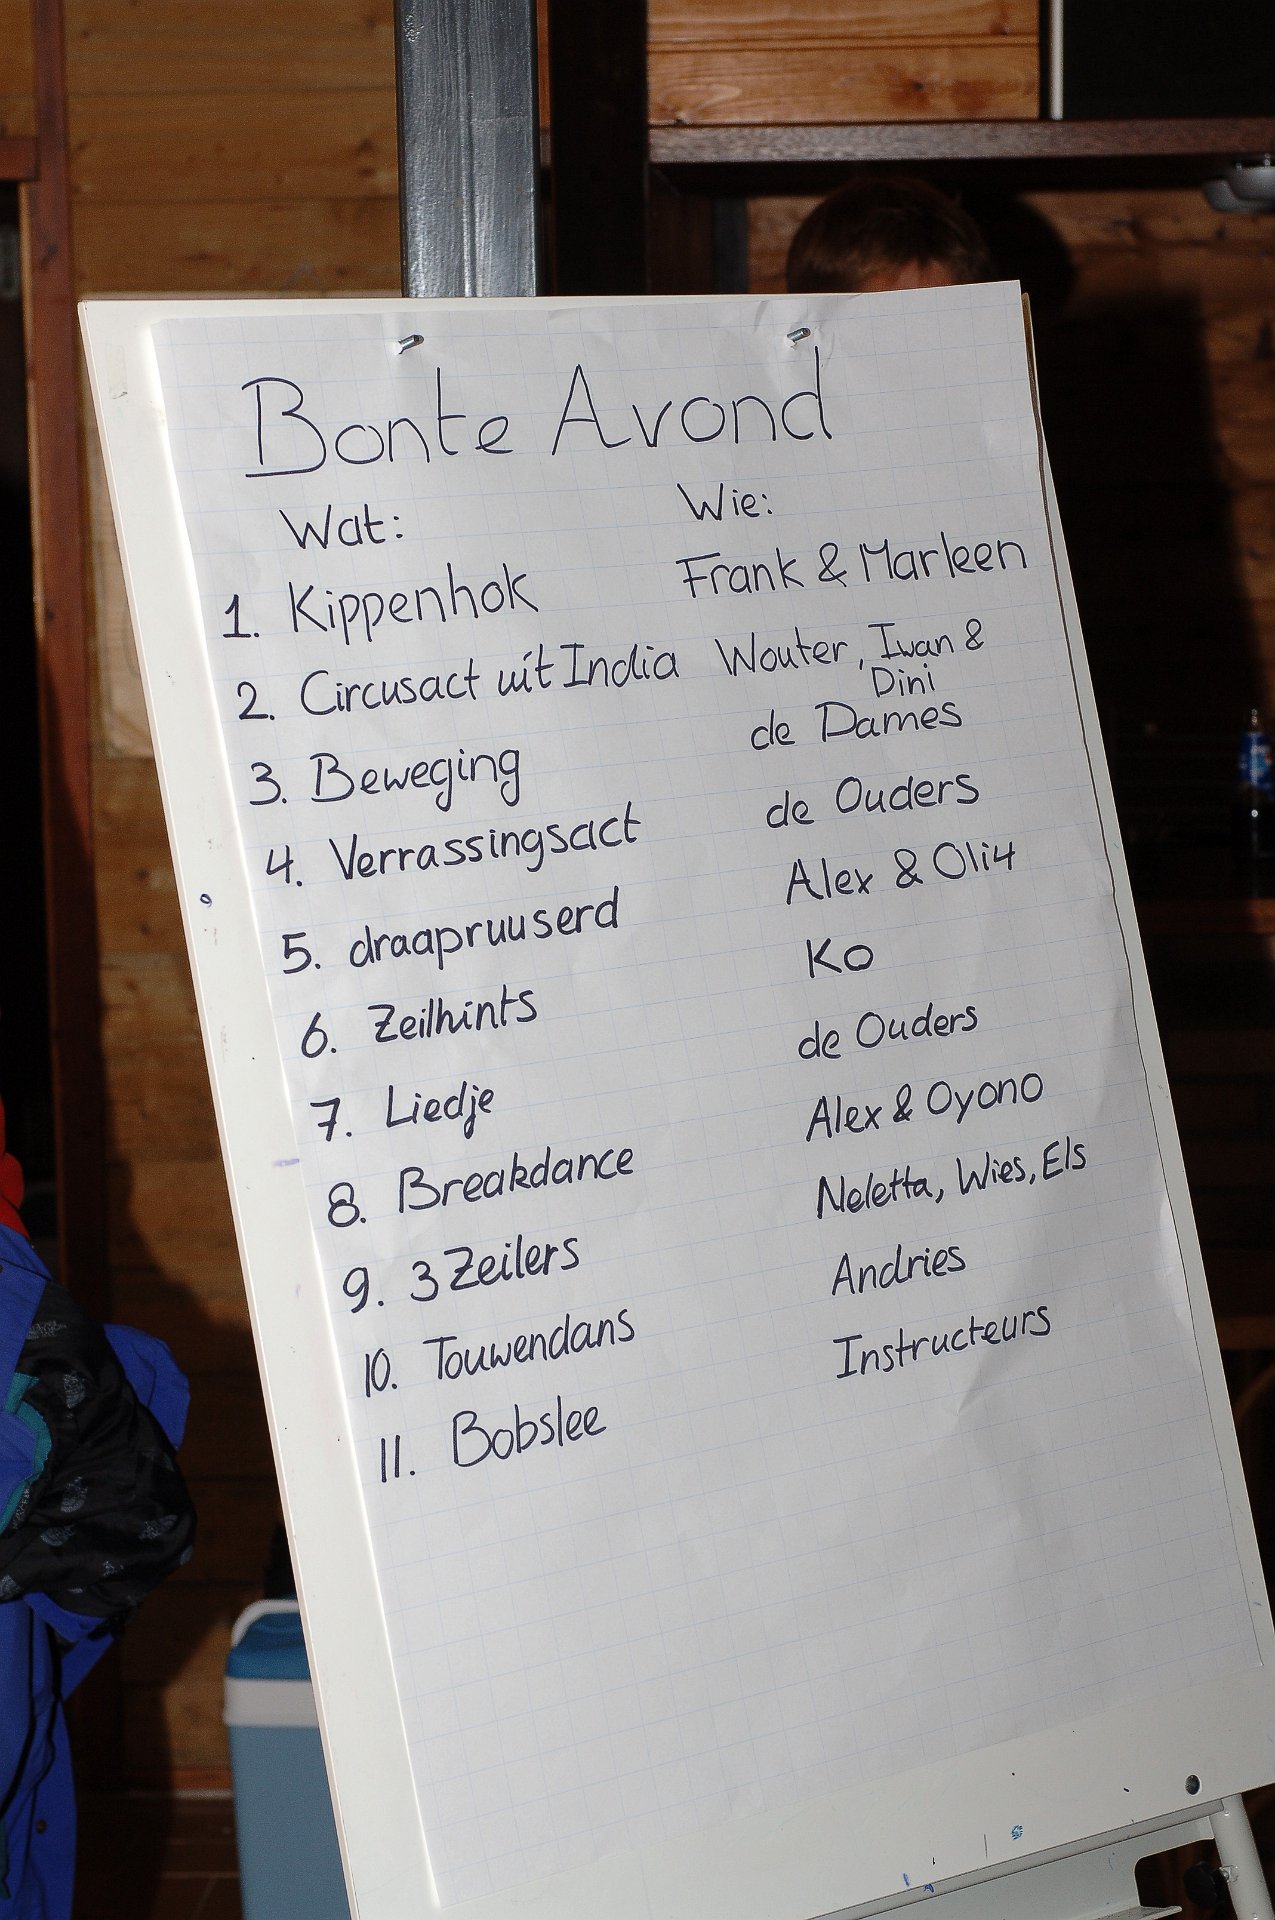 Bonte Avond
Wat: Wie:
1. Kippenhok Frank & Marleen
2. Circusact uit India Wouter, Iwan &
Dini
3. Beweging de Dames
4. Verrassingsact de Ouders
5. draapruuserd Alex & Oli4
6. Zeilhints Ko
7. Liedje de Ouders
8. Breakdance Alex & Oyono
9. 3 Zeilers Neletta, Wies, Els
10. Touwendans Andries
11. Bobslee Instructeurs